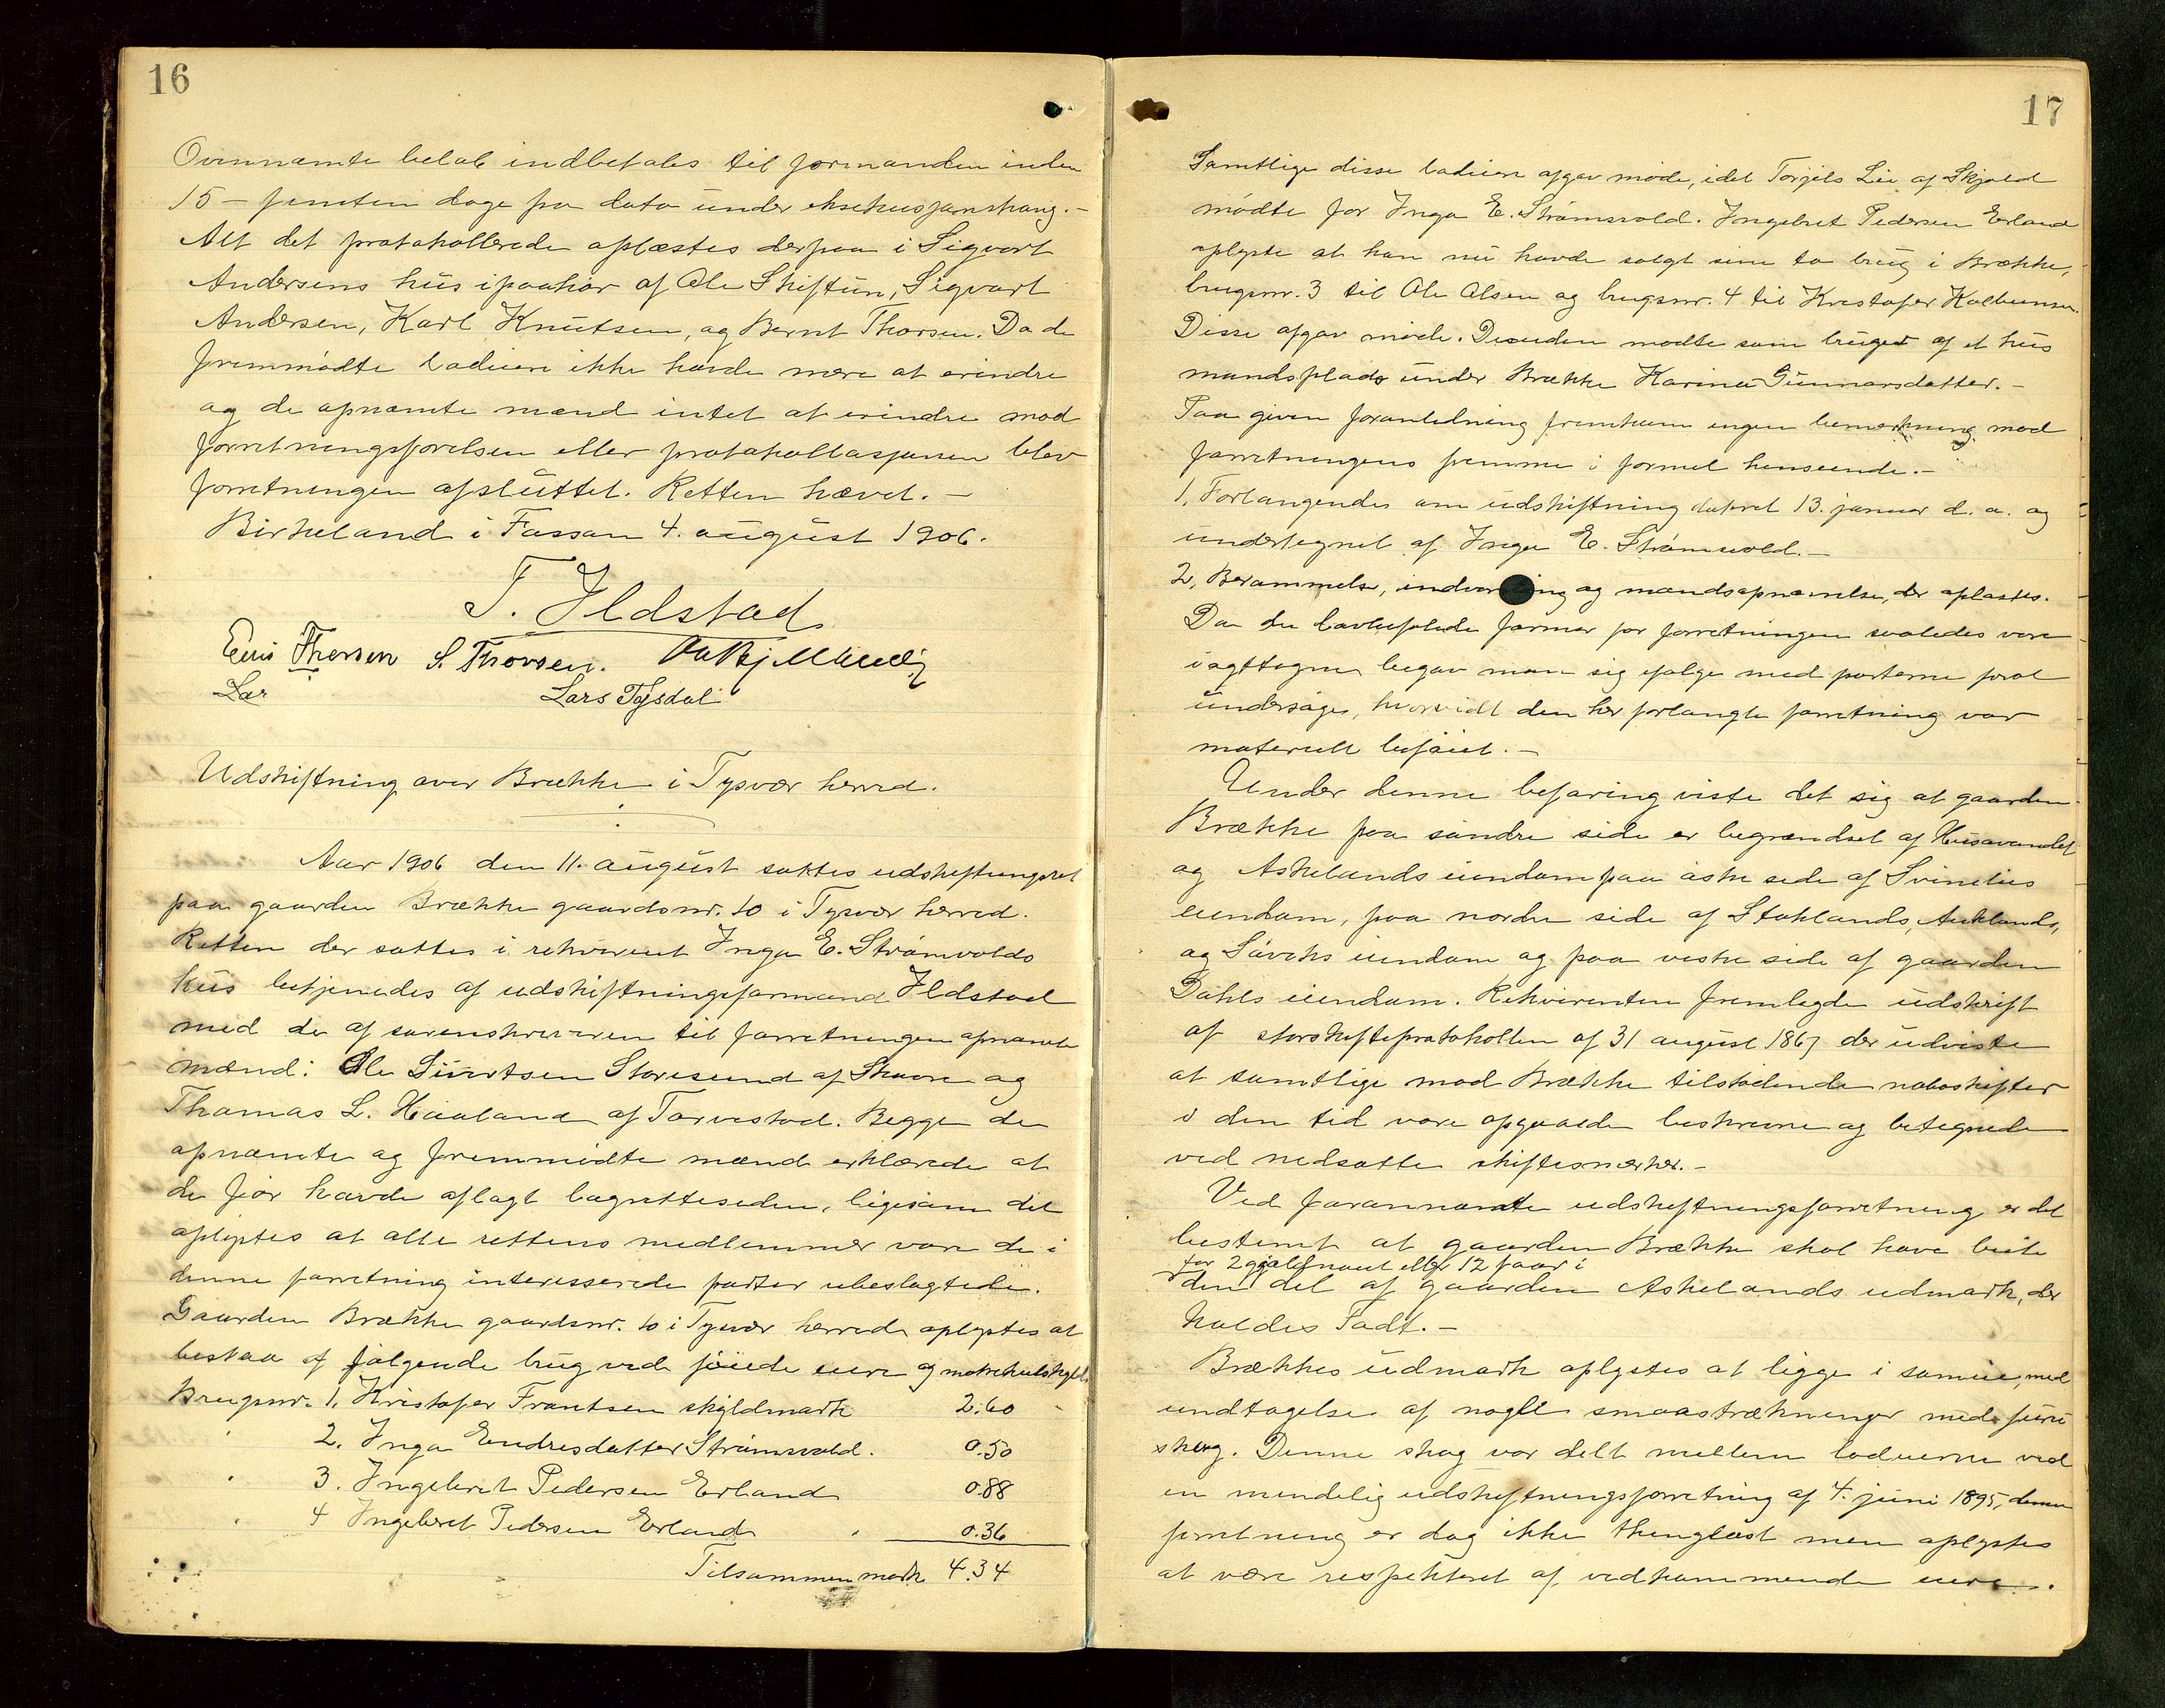 16
Ovennæmte beløb indbetales til formanden inden
15 – femten dage fra dato under eksekusjonstvang. –
Alt det protokollerede oplæstes derpaa i Sigvart
Andersens hus ipaahør af Ole Skiftun, Sigvart
Andersen, Karl Knutsen, og Bernt Thorsen. Da de
fremmødte lodeiere ikke havde mere at erindre
og de opnæmte mænd intet at erindre mod
forretningsførelsen eller protokollasjonen blev
forretningen afsluttet. Retten hævet. –
Birkeland i Fossan 4. august 1906.
T. Ildstad
Thorsen S. Thorsen.
Lar Lars Tysdal
Udskiftning over Brække i Tysvær herred.
Aar 1906 den 11. august sattes udskiftningsret
paa gaarden Brække gaardsnr. 10 i Tysvær herred.
Retten der sattes i rekvirent Inga E. Strømvolds
hus betjenedes af udskiftningsformand Ildstad
med de af sorenskriveren til forretningen opnævnte
mænd: Ole Sivertsen Storesund af Skaare og
Thomas L. Haaland af Torvestad. Begge de
opnæmte og fremmødte mænd erklærede at
de før havde aflagt lagretteseden, ligesom det
oplystes at alle rettens medlemmer vare de i
denne forretning interesserede parter ubeslægtede.
Gaarden Brække gaardsnr. 10 i Tysvær herred oplystes at
bestaa af følgende brug med føiede eiere og matrikulskyld.
Brugsnr. 1, Kristofer Frantsen skyldmark 2.60
" 2. Inga Endresdatter Strømsvold. 0.50
" 3. Ingebret Pedersen Erland 0.88
" 4 Ingebret Pedersen Erland " 0.36
Tilsammen mark 4.34
17
Samtlige disse lodeiere afgav møde, idet Torjels Lie af Skjold
mødte for Inga E. Strømsvold. Ingebret Pedersen Erland
oplyste at han nu havde solgt sine to brug i Brække,
brugsnr. 3 til Ole Olsen og brugsnr. 4 til Kristofer Kolbeinsen.
Disse afgav møde. Desuden mødte som bruger af et hus
mandsplads under Brække Karina Gunnarsdatter. –
Paa given foranledning fremkom ingen bemerkning mod
forretningens fremme i formel henseende. –
1, Forlangendes om udskiftning dateret 13. januar d. a. og
undertegnet af Inga E. Strømsvold. –
2, Berammelse, indvarsling og mandsopnævnelse, der oplæstes.
Da de lovbefalede former for forretningen saaledes vare
iagttagne begav man sig ifølge med parterne forat
undersøge, hvorvidt den her forlangte forretning var
materielt beføiet. –
Under denne befaring viste det sig at gaarden
Brække paa søndre side er begrændset af Husavandet
og Askelands eiendom paa østre side af Svinelies
eiendom, paa nordre side af Stoklands, Auklands,
og Søviks eiendom og paa vestre side af gaarden
Dahls eiendom. Rekvirenten fremlagde udskrift
af storskifteprotokollen af 31 august 1867 der udviste
at samtlige mod Brække tilstødende naboskifter
i den tid vare opgaaede beskrevne og betegnede
ved nedsatte skiftesmerker. –
Ved forannævnte udskiftningsforretning er det
bestemt at gaarden Brække skal have beite
for 2 gjeldnaut eller 12 faar i
den del af gaarden Askelands udmark, der
kaldes Tadt. –
Brækkes udmark oplystes at ligge i sameie, med
undtagelse af nogle smaastrækninger med furu
skog. Denne skog var delt mellem lodeierne ved
en mindelig udskiftningsforretning af 4. juni 1895, denne
forretning er dog ikke thinglæst men oplystes
at være respekteret af vedkommende eiere.